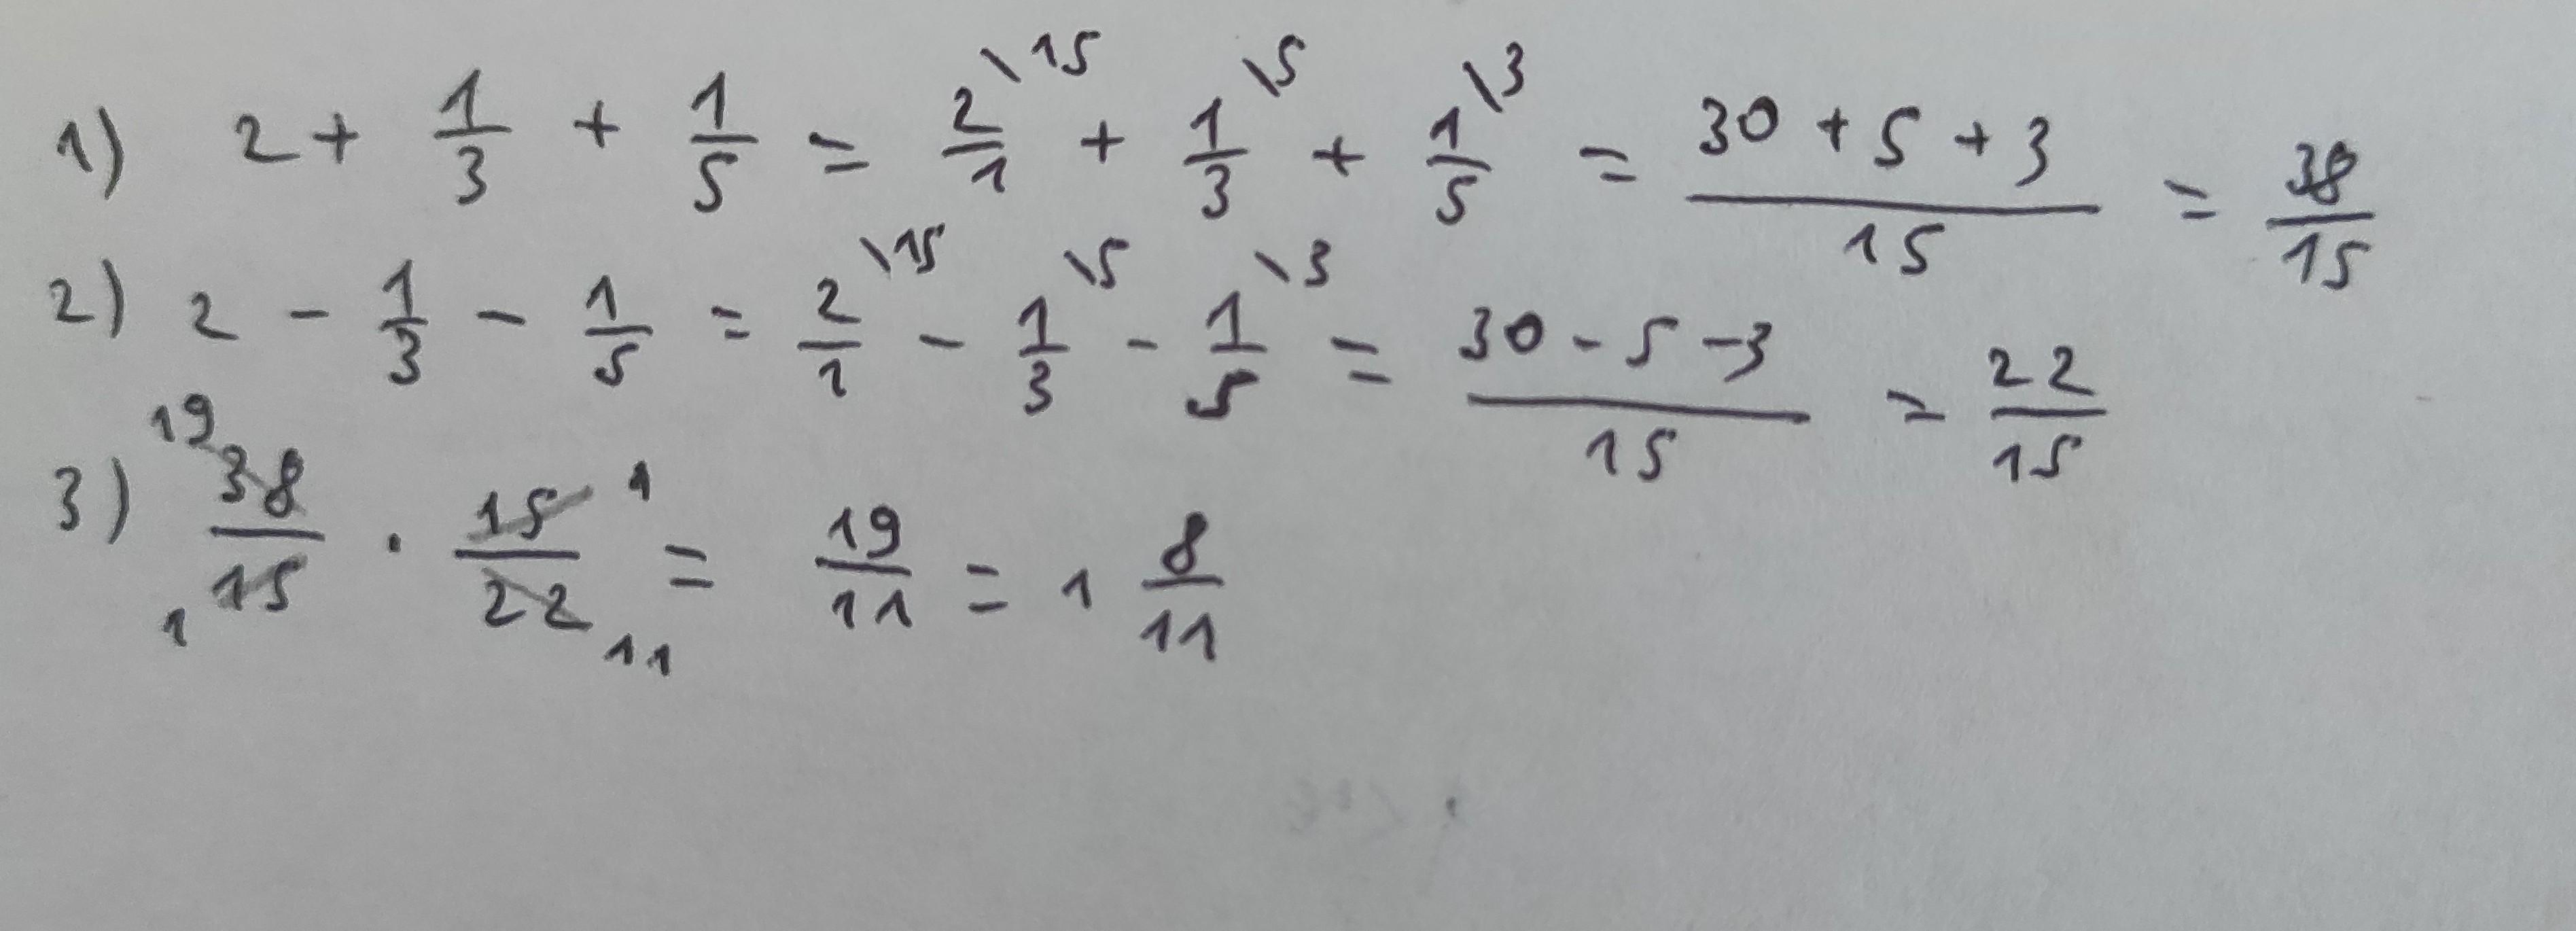 1) 2 + 1/3 + 1/5 = 2/1 \15 + 1/3 \5 + 1/5 \3 = (30 + 5 + 3)/15 = 38/15
2) 2 - 1/3 - 1/5 = 2/1 \15 - 1/3 \5 - 1/5 \3 = (30 - 5 - 3)/15 = 22/15
3) 19 38/15 1 · 15/22 1 11 = 19/11 = 1 8/11